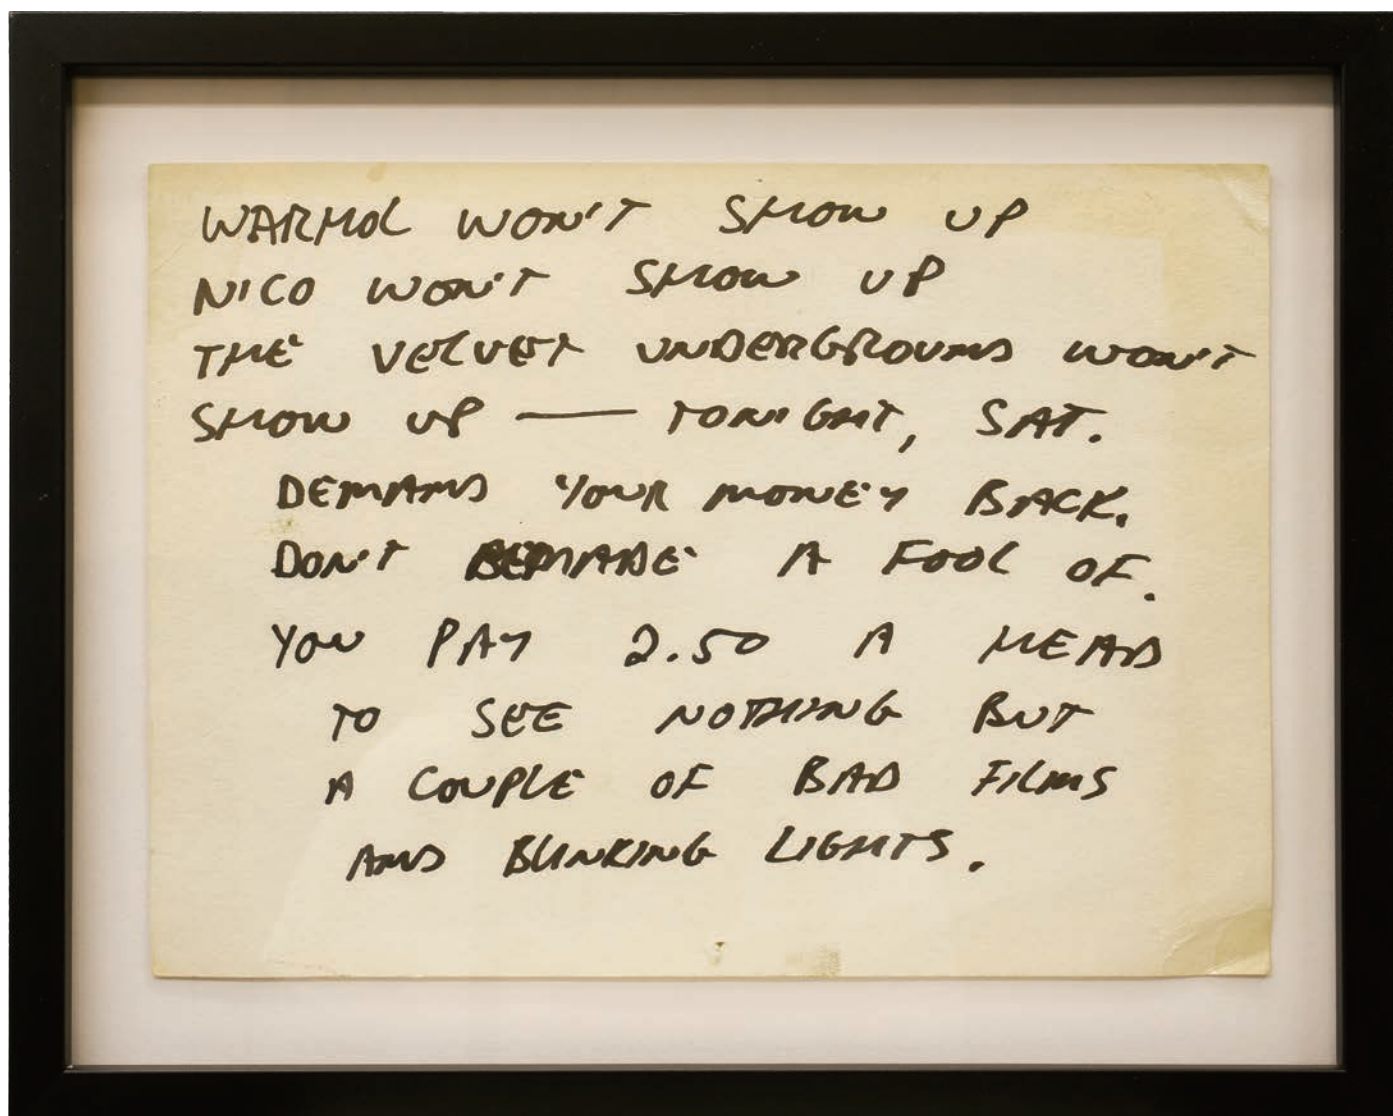 WARHOL WON'T SHOW UP
NICO WON'T SHOW UP
THE VELVET UNDERGROUND WON'T
SHOW UP — TONIGHT, SAT.
DEMAND YOUR MONEY BACK.
DON'T BE MADE A FOOL OF.
YOU PAY 2.50 A HEAD
TO SEE NOTHING BUT
A COUPLE OF BAD FILMS
AND BLINKING LIGHTS.